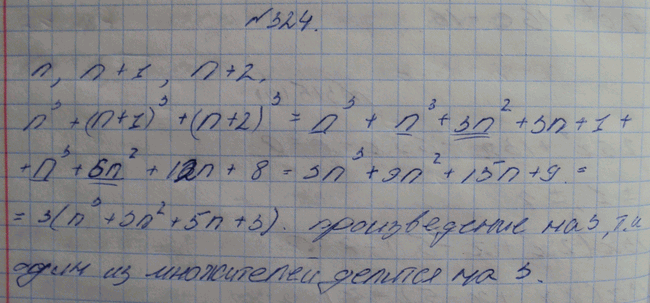 №324.
n, n+1, n+2.
n³ + (n+1)³ + (n+2)³ = n³ + n³ + 3n² + 3n + 1 +
+ n³ + 6n² + 12n + 8 = 3n³ + 9n² + 15n + 9 =
= 3(n³ + 3n² + 5n + 3). произведение на 3, т.к
один из множителей делится на 3.